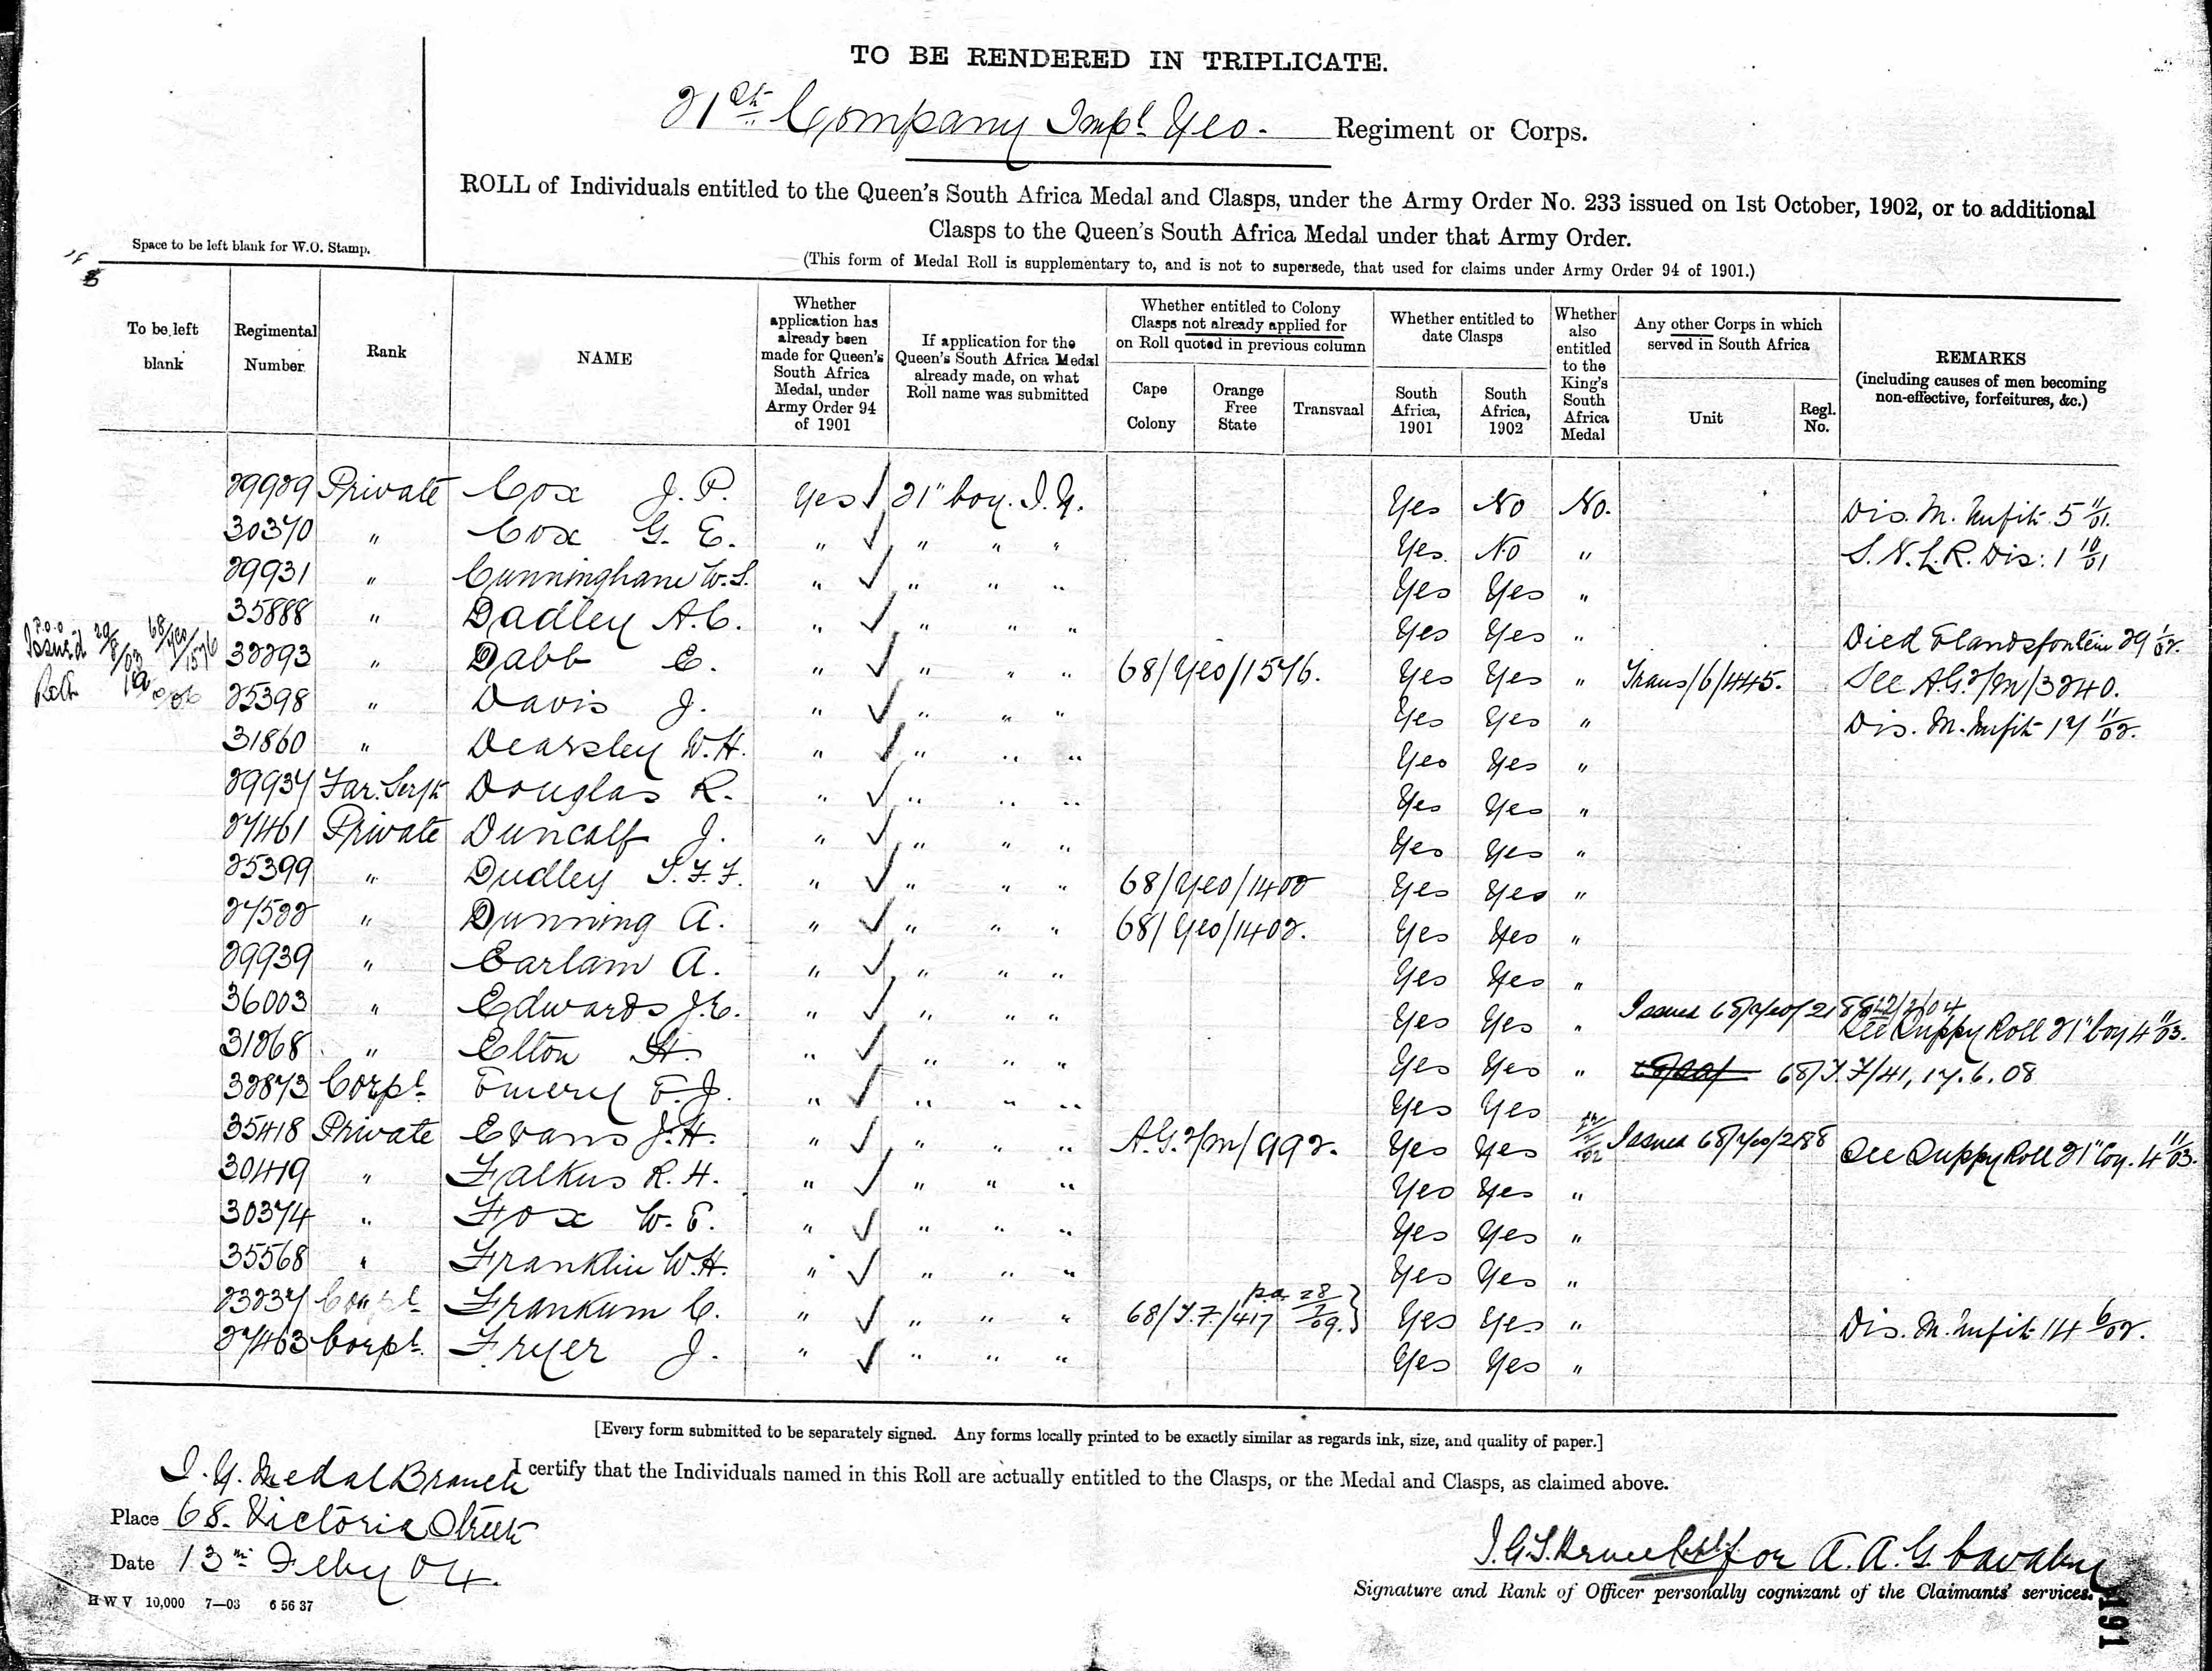 TO BE RENDERED IN TRIPLICATE.
21st Company Impl Yeo. Regiment or Corps.
ROLL of Individuals entitled to the Queen's South Africa Medal and Clasps, under the Army Order No. 233 issued on 1st October, 1902, or to additional
Clasps to the Queen's South Africa Medal under that Army Order.
(This form of Medal Roll is supplementary to, and is not to supersede, that used for claims under Army Order 94 of 1901.)
Space to be left blank for W.O. Stamp.
To be left blank
Regimental Number
Rank
NAME
Whether application has already been made for Queen's South Africa Medal, under Army Order 94 of 1901
If application for the Queen's South Africa Medal already made, on what Roll name was submitted
Whether entitled to Colony Clasps not already applied for on Roll quoted in previous column
Cape Colony
Orange Free State
Transvaal
Whether entitled to date Clasps
South Africa, 1901
South Africa, 1902
Whether also entitled to the King's South Africa Medal
Any other Corps in which served in South Africa
Unit
Regl. No.
REMARKS
(including causes of men becoming non-effective, forfeitures, &c.)
29929 Private Cox J. P. Yes ✓ 21" Coy. I.Y. Yes No No. Dis. M. Unfit 5 11/01.
30370 " Cox G. E. " ✓ " " " Yes No " S.N.L.R. Dis: 1 10/01
29931 " Cunninghame W.S. " ✓ " " " Yes Yes "
35888 " Dadley A.C. " ✓ " " " Yes Yes " Died Elandsfontein 29 1/02.
Issued 68/Yeo/1576 32293 " Dabb E. " ✓ " " " 68/Yeo/1576. Yes Yes " Trans/6/445. See A.G.2/M/3240.
25398 " Davis J. " ✓ " " " Yes Yes " Dis. M. Unfit 17 11/02.
31860 " Dearsley W.H. " ✓ " " " Yes Yes "
29937 Far. Serjt Douglas R. " ✓ " " " Yes Yes "
27461 Private Duncalf J. " ✓ " " " Yes Yes "
25399 " Dudley S.F.F. " ✓ " " " 68/Yeo/1402 Yes Yes "
27522 " Dunning A. " ✓ " " " 68/Yeo/1402. Yes Yes "
29939 " Earlam A. " ✓ " " " Yes Yes "
36003 " Edwards J.E. " ✓ " " " Yes Yes " Issued 68/Yeo/2188 See Suppy Roll 21" Coy 4 11/03.
31268 " Elton H. " ✓ " " " Yes Yes " 68/I.F/41, 17.6.08
32873 Corpl. Emery E.J. " ✓ " " " Yes Yes
35418 Private Evans J.H. " ✓ " " " A.G.2/M/992. Yes Yes Issued 68/Yeo/2188 See Suppy Roll 21" Coy. 4 11/03.
30419 " Falkus R.H. " ✓ " " " Yes Yes "
30374 " Fox W.E. " ✓ " " " Yes Yes "
35568 " Franklin W.H. " ✓ " " " Yes Yes "
23237 Frankum C. " ✓ " " " 68/I.F./417 Yes Yes " Dis. M. Unfit 14 6/02.
27463 Corpl. Fryer J. " ✓ " " " Yes Yes "
[Every form submitted to be separately signed. Any forms locally printed to be exactly similar as regards ink, size, and quality of paper.]
I certify that the Individuals named in this Roll are actually entitled to the Clasps, or the Medal and Clasps, as claimed above.
I.Y. Medal Branch
Place 68. Victoria Street
Date 13th Feby 04.
for A.A.G. Cavalry
Signature and Rank of Officer personally cognizant of the Claimants' services.
H W V 10,000 7—03 6 56 37
191